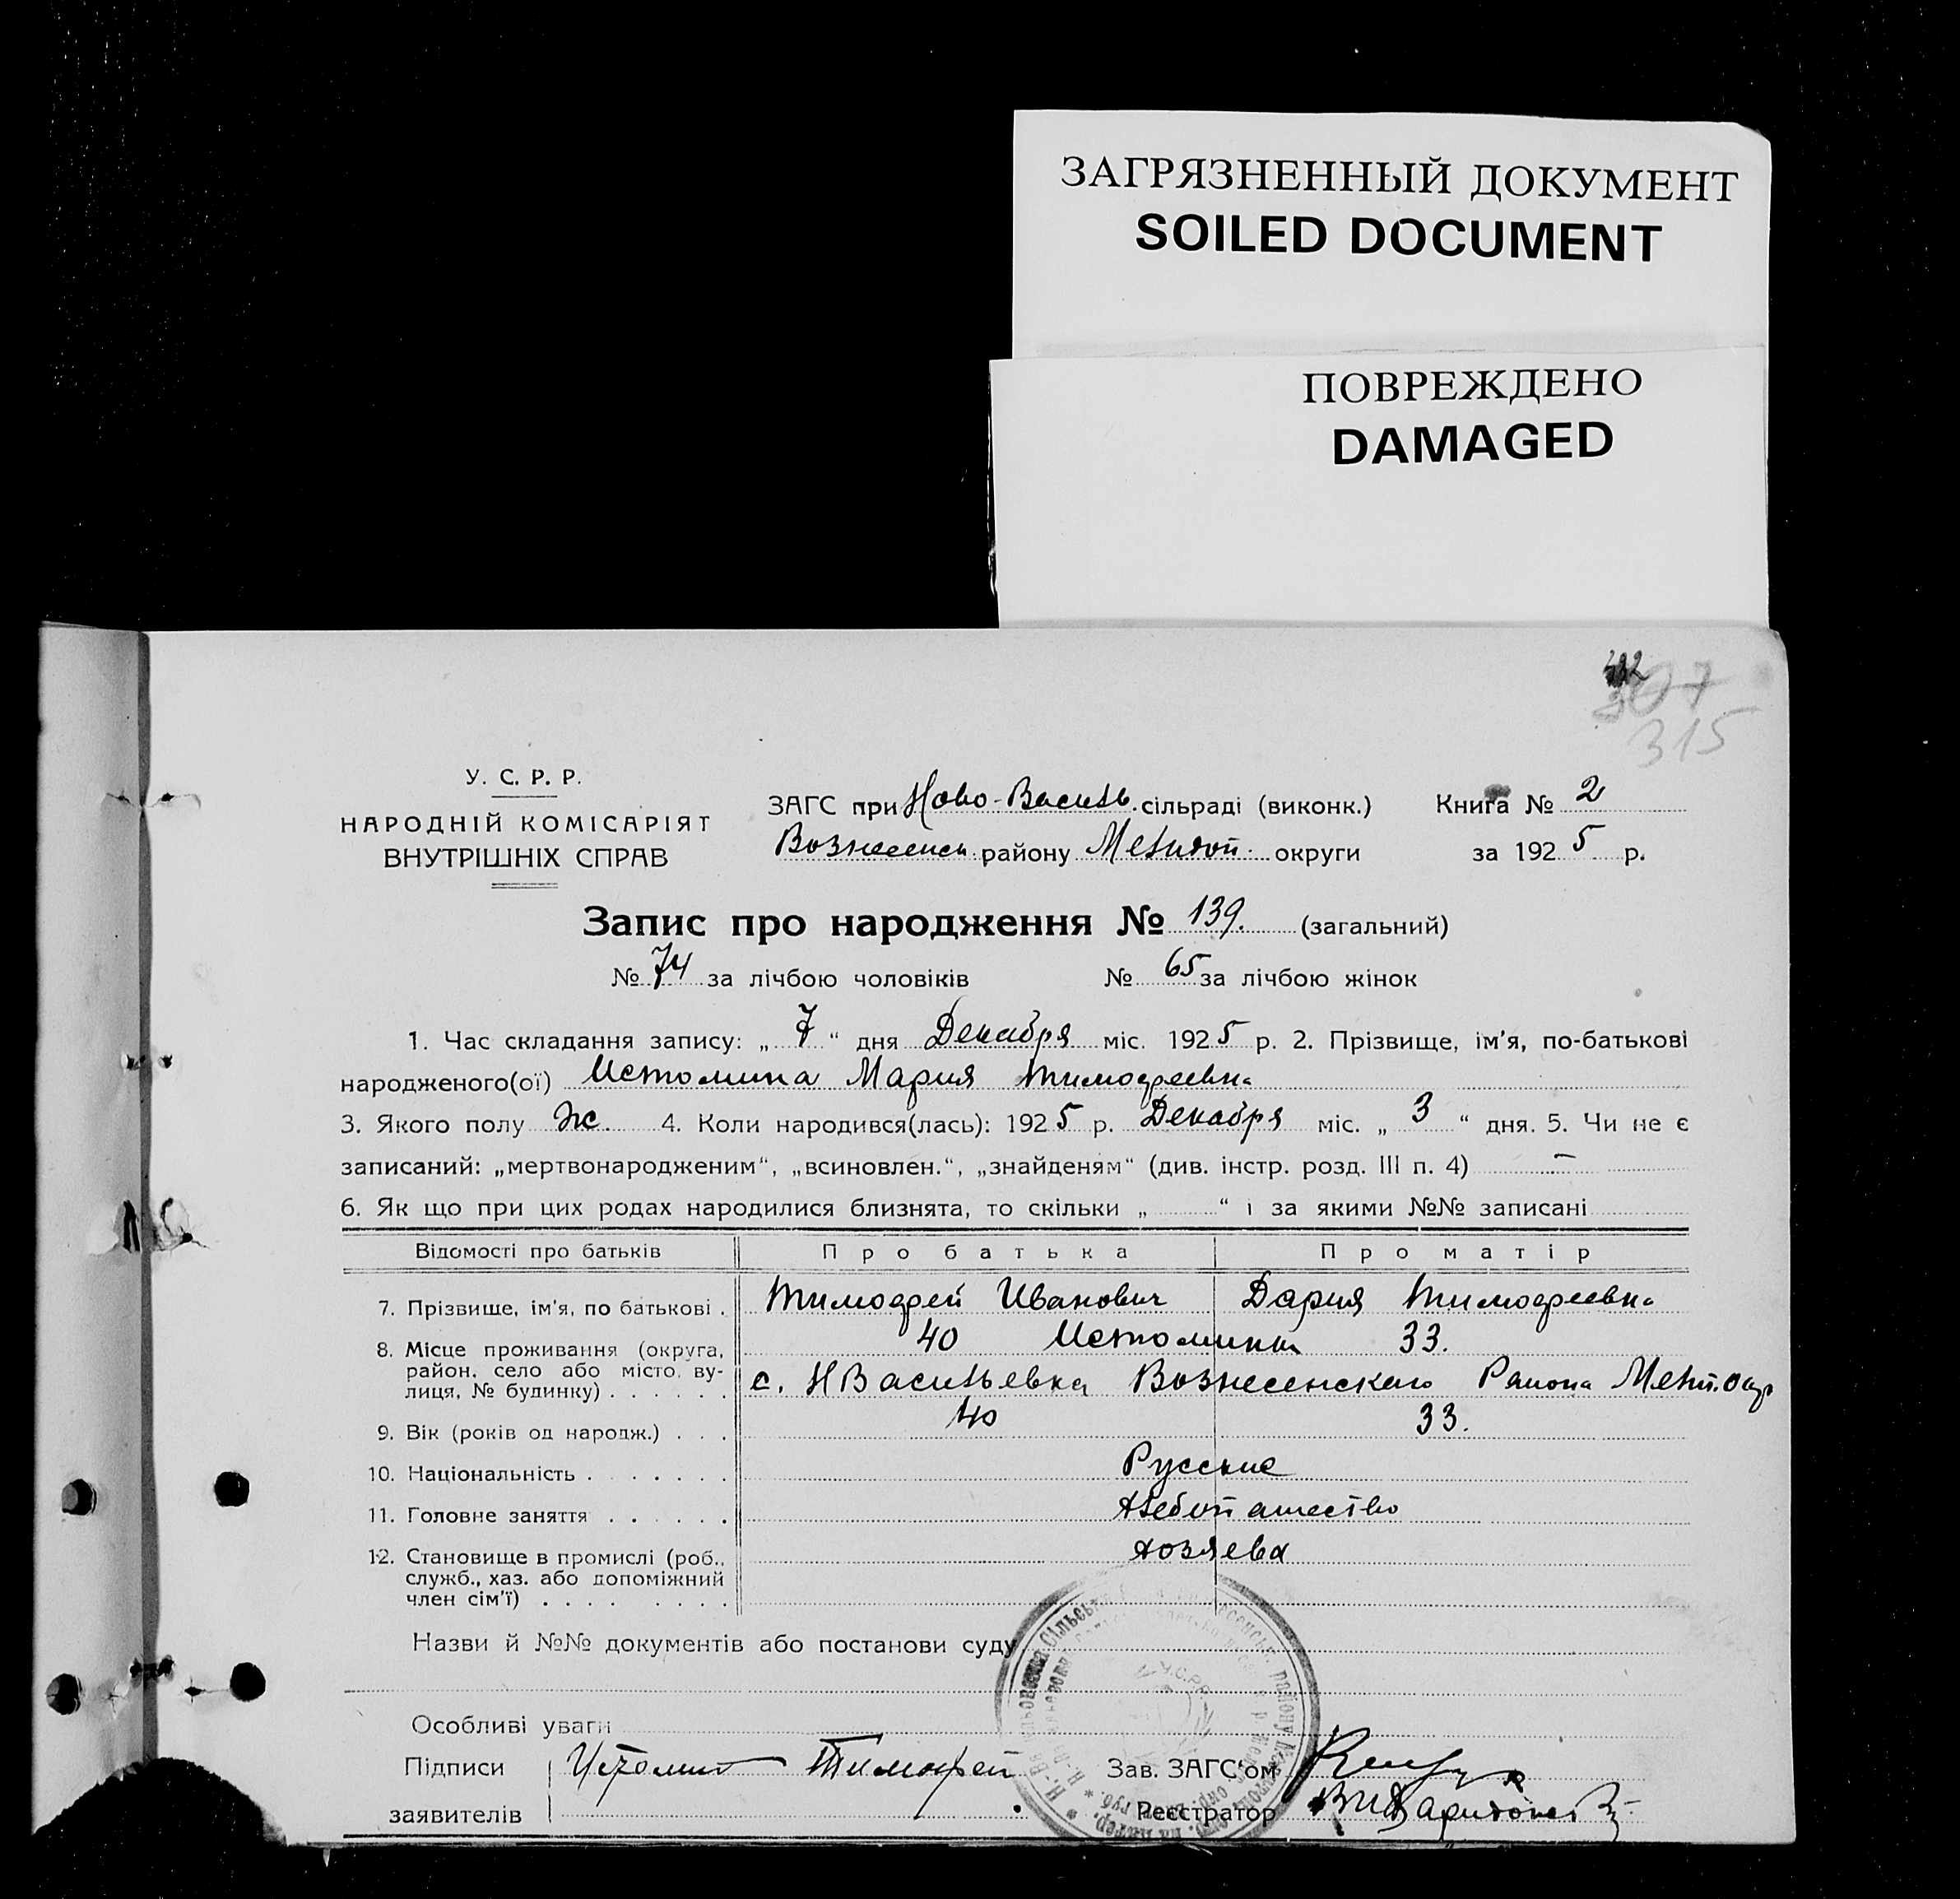 ЗАГРЯЗНЕННЫЙ ДОКУМЕНТ
SOILED DOCUMENT
ПОВРЕЖДЕНО
DAMAGED
307
315
У. С. Р. Р.
НАРОДНІЙ КОМІСАРІЯТ
ВНУТРІШНІХ СПРАВ
ЗАГС при Ново-Василь. сільраді (виконк.)
Вознесенск. району Мелитоп. округи
Книга № 2
за 1925 р.
Запис про народження № 139. (загальний)
№ 74 за лічбою чоловіків № 65 за лічбою жінок
1. Час складання запису: „ 7 “ дня Декабря міс. 1925 р. 2. Прізвище, ім'я, по-батькові
народженого(ої) Истомина Мария Тимофеевна
3. Якого полу Ж. 4. Коли народився(лась): 1925 р. Декабря міс. „ 3 “ дня. 5. Чи не є
записаний: „мертвонародженим“, „всиновлен.“, „знайденям“ (див. інстр. розд. III п. 4) —
6. Як що при цих родах народилися близнята, то скільки „ “ і за якими №№ записані
Відомості про батьків Про батька Про матір
7. Прізвище, ім'я, по батькові . Тимофей Иванович Дария Тимофеевна
40 Истомины 33.
8. Місце проживання (округа,
район, село або місто, ву-
лиця, № будинку) . . . . . . с. НВасильевка Вознесенского Района Мелит. Окр
9. Вік (років од народж.) . . . 40 33.
10. Національність . . . . . . . Русские
11. Головне заняття . . . . . . Хлебопашество
12. Становище в промислі (роб.,
служб., хаз. або допоміжний
член сім'ї) . . . . . . . . хозяева
Назви й №№ документів або постанови суду
У.С.Р.Р.
Особливі уваги
Підписи Истомин Тимофей Зав. ЗАГС'ом
заявителів Реєстратор